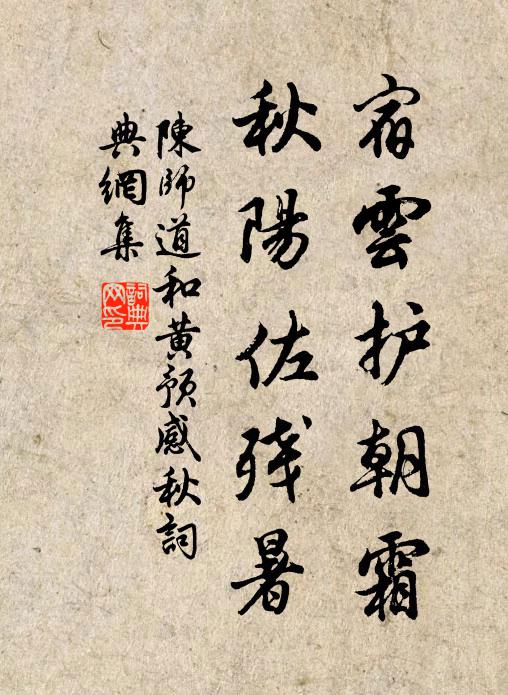 宿雲护朝霜
秋陽佐残暑
陳師道和黄预感秋詞
典網集
詞典網印